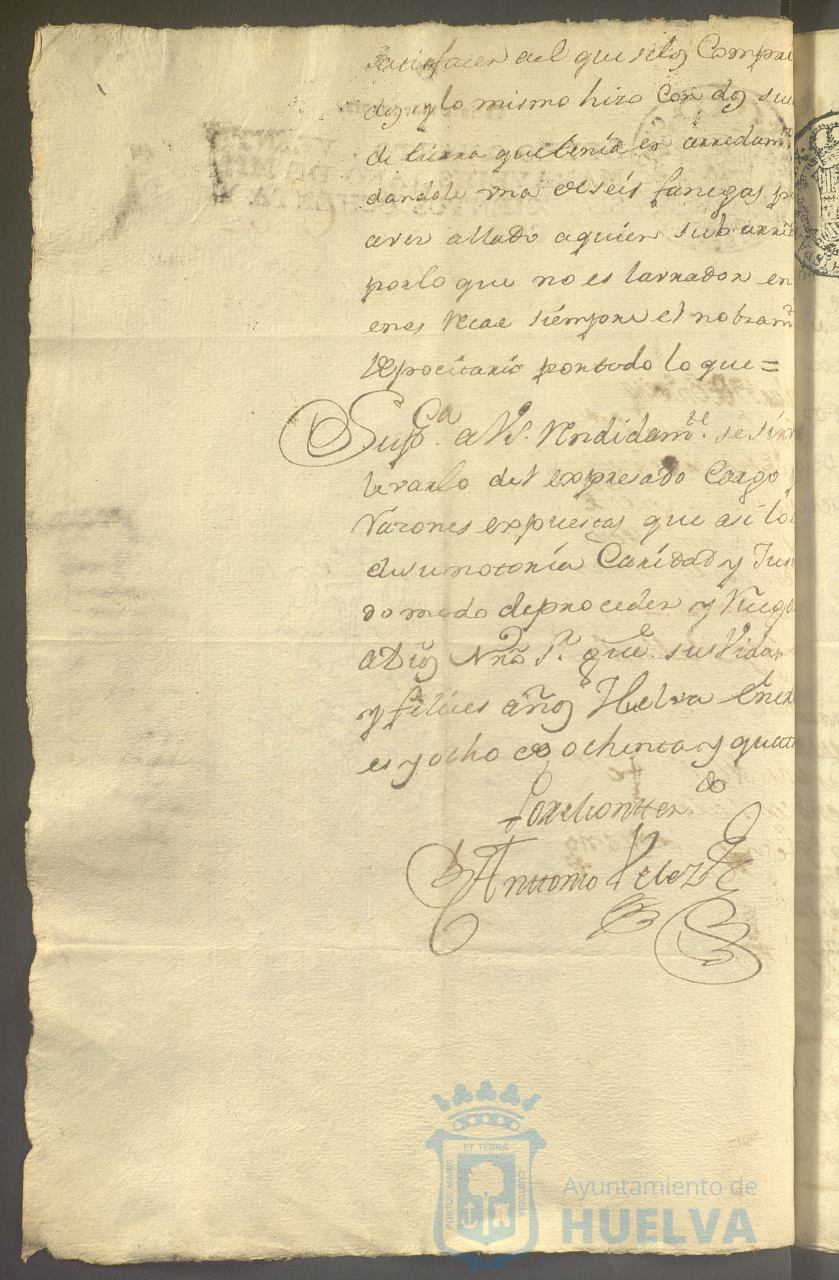 satisfacer al que selos Compra
dos y lo mismo hizo con dos su
de tierra que tenia en arredam.to
dandole una de seis fanegas p
aver allado aquien subarre
por lo que no es lavrador en
enes recae siempre el nobram.to
Depocitario por todo lo que =
Sup.ca a VS. Rendidam.te se sirv
levarlo del expresado Cargo
razones expuestas que asi lo
de su notoria Caridad y Jus
do modo de proceder y Ruego
a Dios Nrõ S.r gue. sus Vida
y felices años Huelva Ener
es y ocho de ochenta y quatt
Por el contten.do
Anttonio Velez
ET TERRÆ
PORTUS MARIS
CUSTODIA
Ayuntamiento de
HUELVA